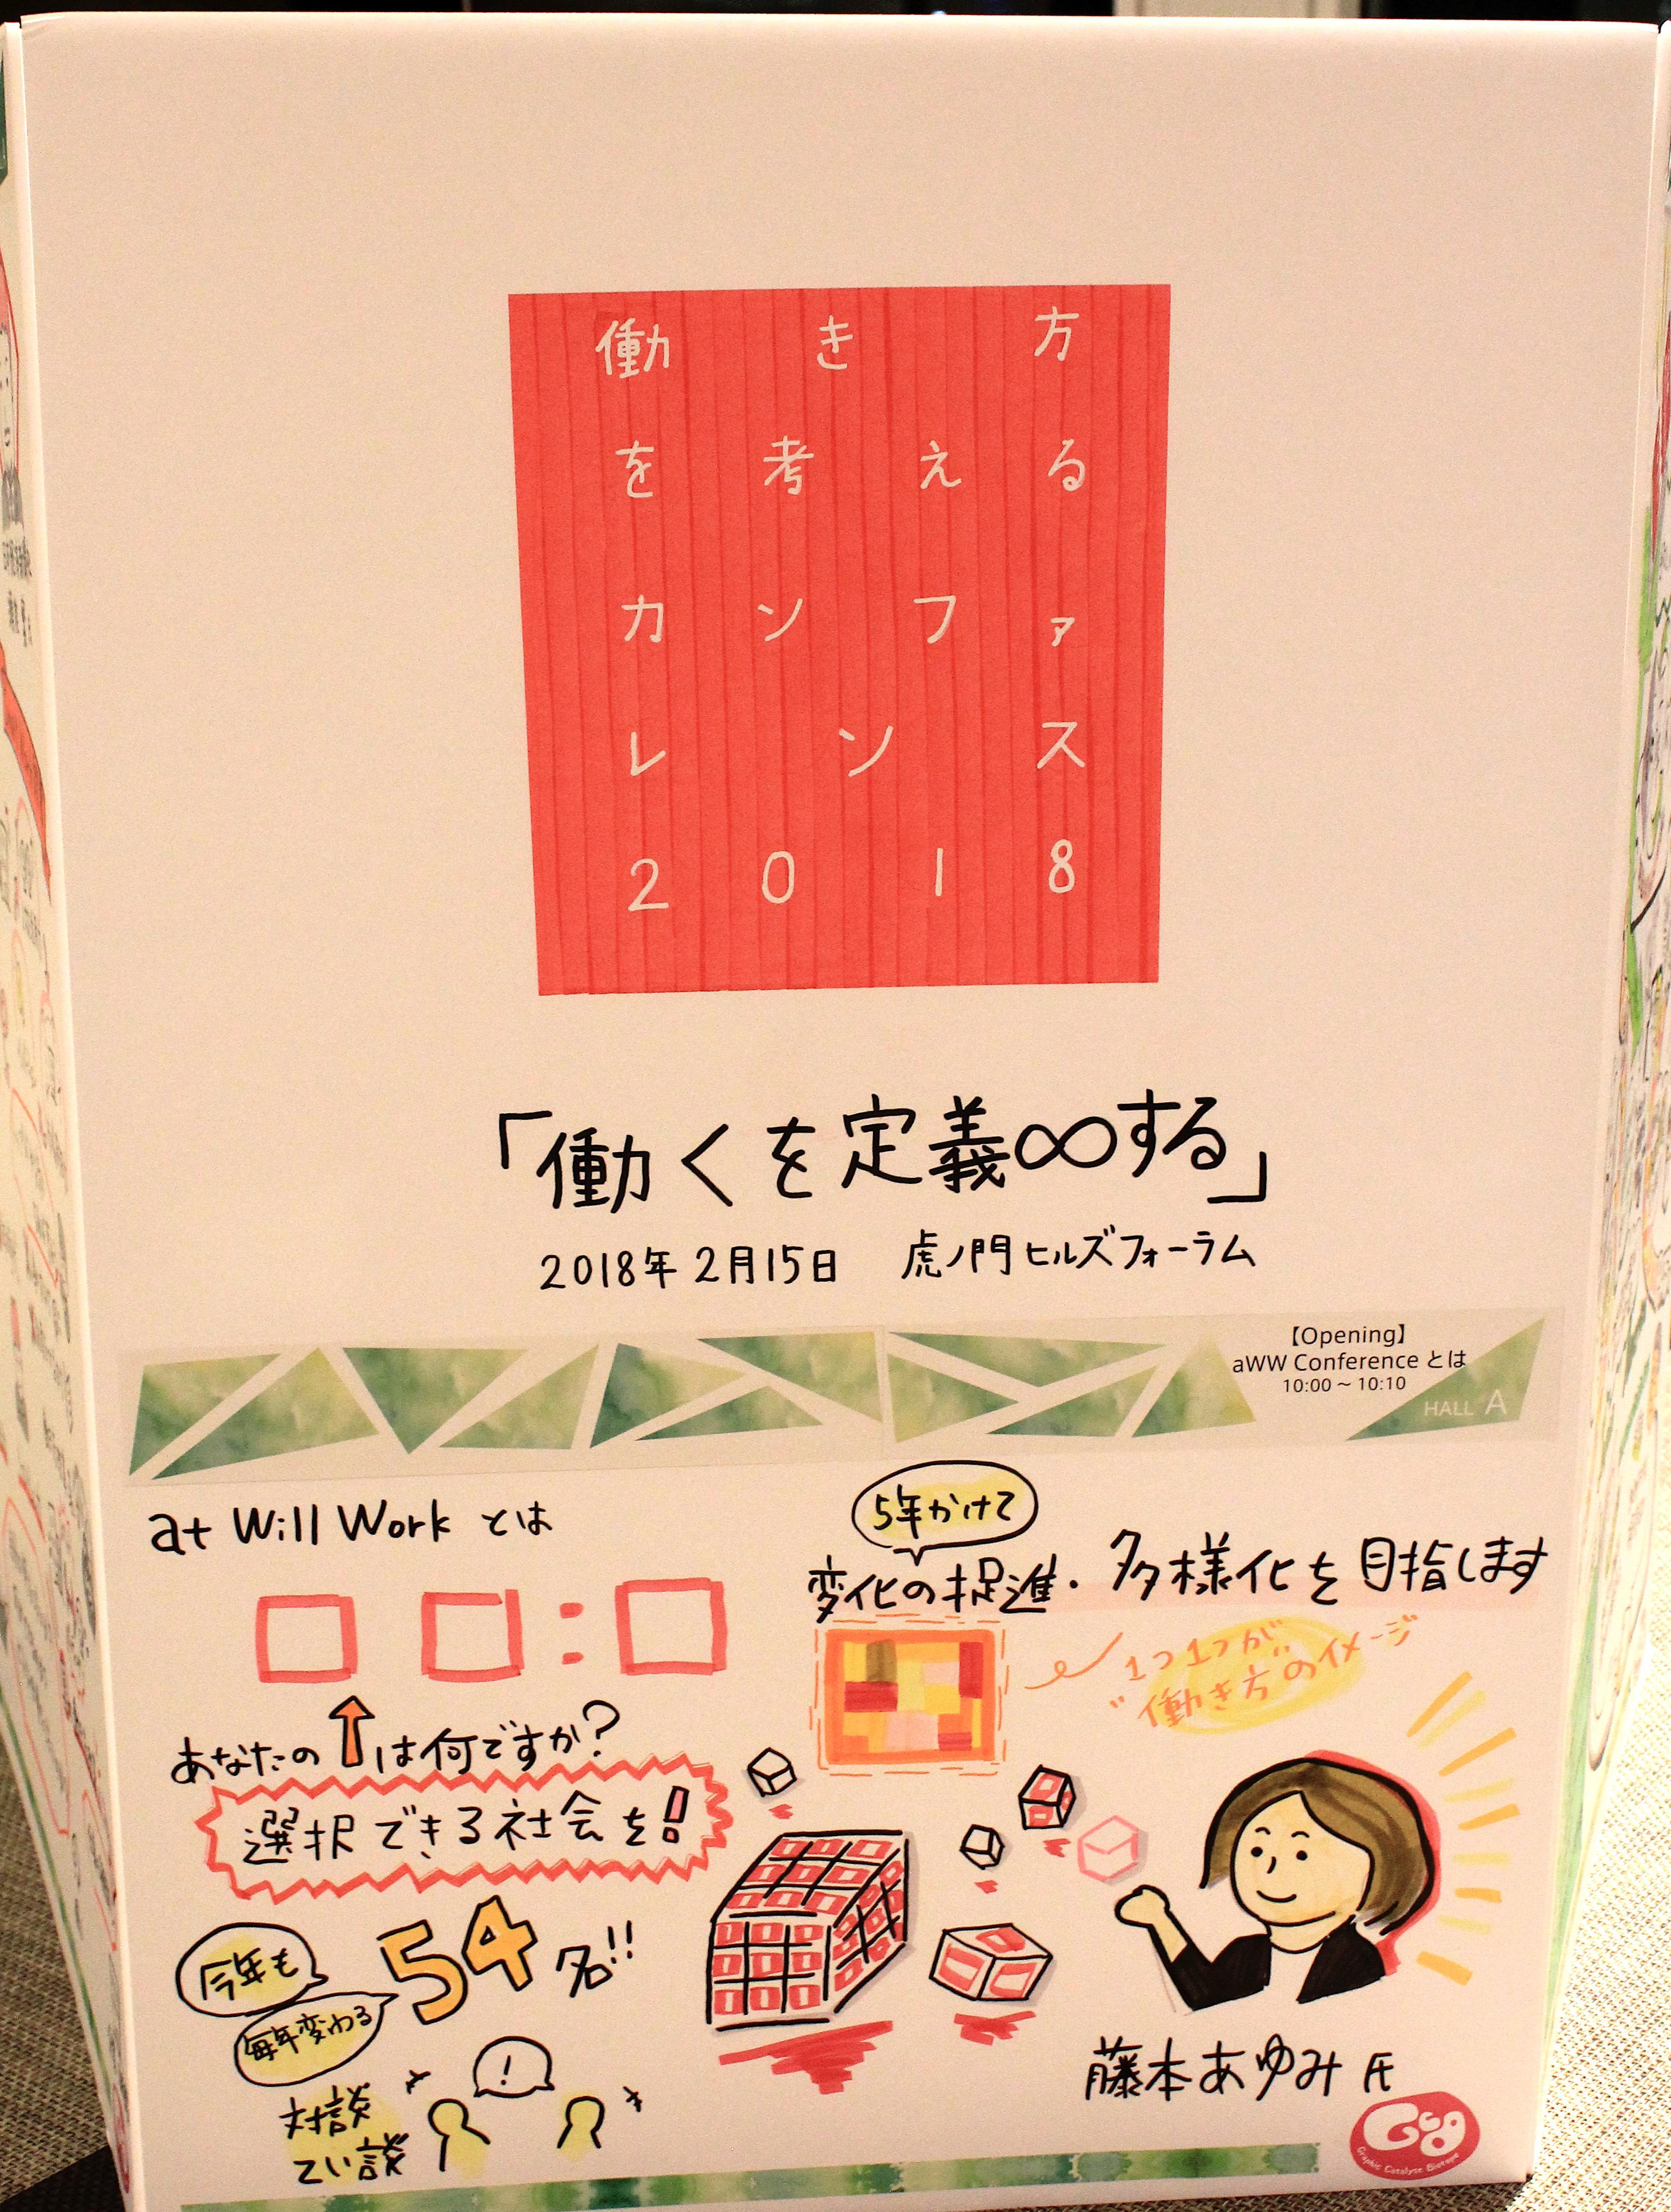 働き方
を考える
カンファ
レンス
2018
「働くを定義∞する」
2018年2月15日 虎ノ門ヒルズフォーラム
【Opening】
aWW Conference とは
10:00 ~ 10:10
HALL A
at Will Work とは
あなたの↑は何ですか?
選択できる社会を!
今年も
毎年変わる
54名!!
対談
てい談
!
5年かけて
変化の促進・多様化を目指します
1つ1つが
"働き方"のイメージ
藤本あゆみ氏
GCB
Graphic Catalyst Biotope